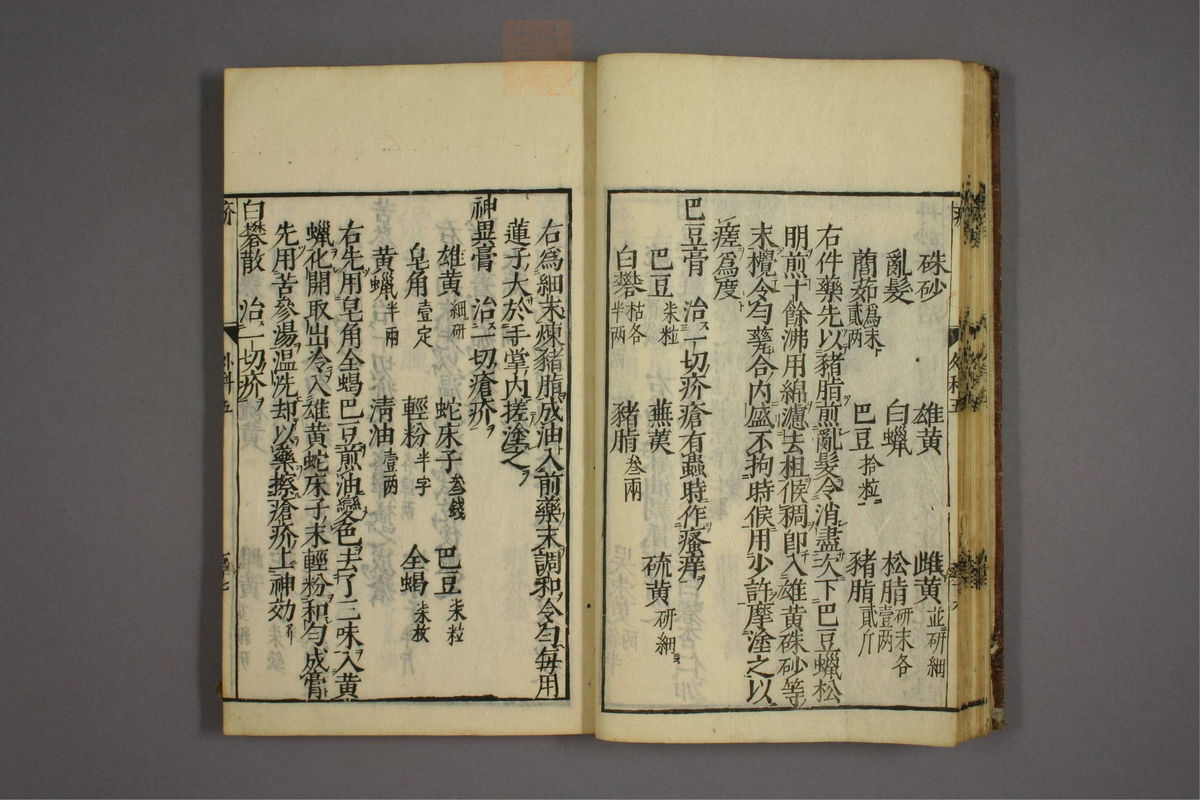 硃砂　雄黄　雌黄並研細
亂髮　白蠟　松脂研末各壹两
藺茹為末貳两　巴豆拾粒　豬脂貳斤
右件藥先以豬脂煎亂髮令消盡次下巴豆蠟松
明煎十餘沸用綿濾去柤候稠即入雄黄硃砂等
末攪令匀甆合内盛不拘時候用少許摩塗之以
瘥爲度
巴豆膏　治一切疥瘡有蟲時作瘙痒
巴豆柒粒　蕪荑　硫黄研細
白礬枯各半两　豬脂叁兩
右爲細末煉豬脂成油入前藥末調和令匀每用
蓮子大於手掌内搓塗之
神異膏　治一切瘡疥
雄黄細研　蛇床子叁錢　巴豆柒粒
皂角壹定　輕粉半字　全蝎柒枚
黄蠟半兩　清油壹两
右先用皂角全蝎巴豆煎油變色去了三味入黄
蠟化開取出冷入雄黄蛇床子末輕粉和匀成膏
先用苦參湯温洗却以藥擦瘡疥上神効
白礬散　治一切疥
疥　外科五　七